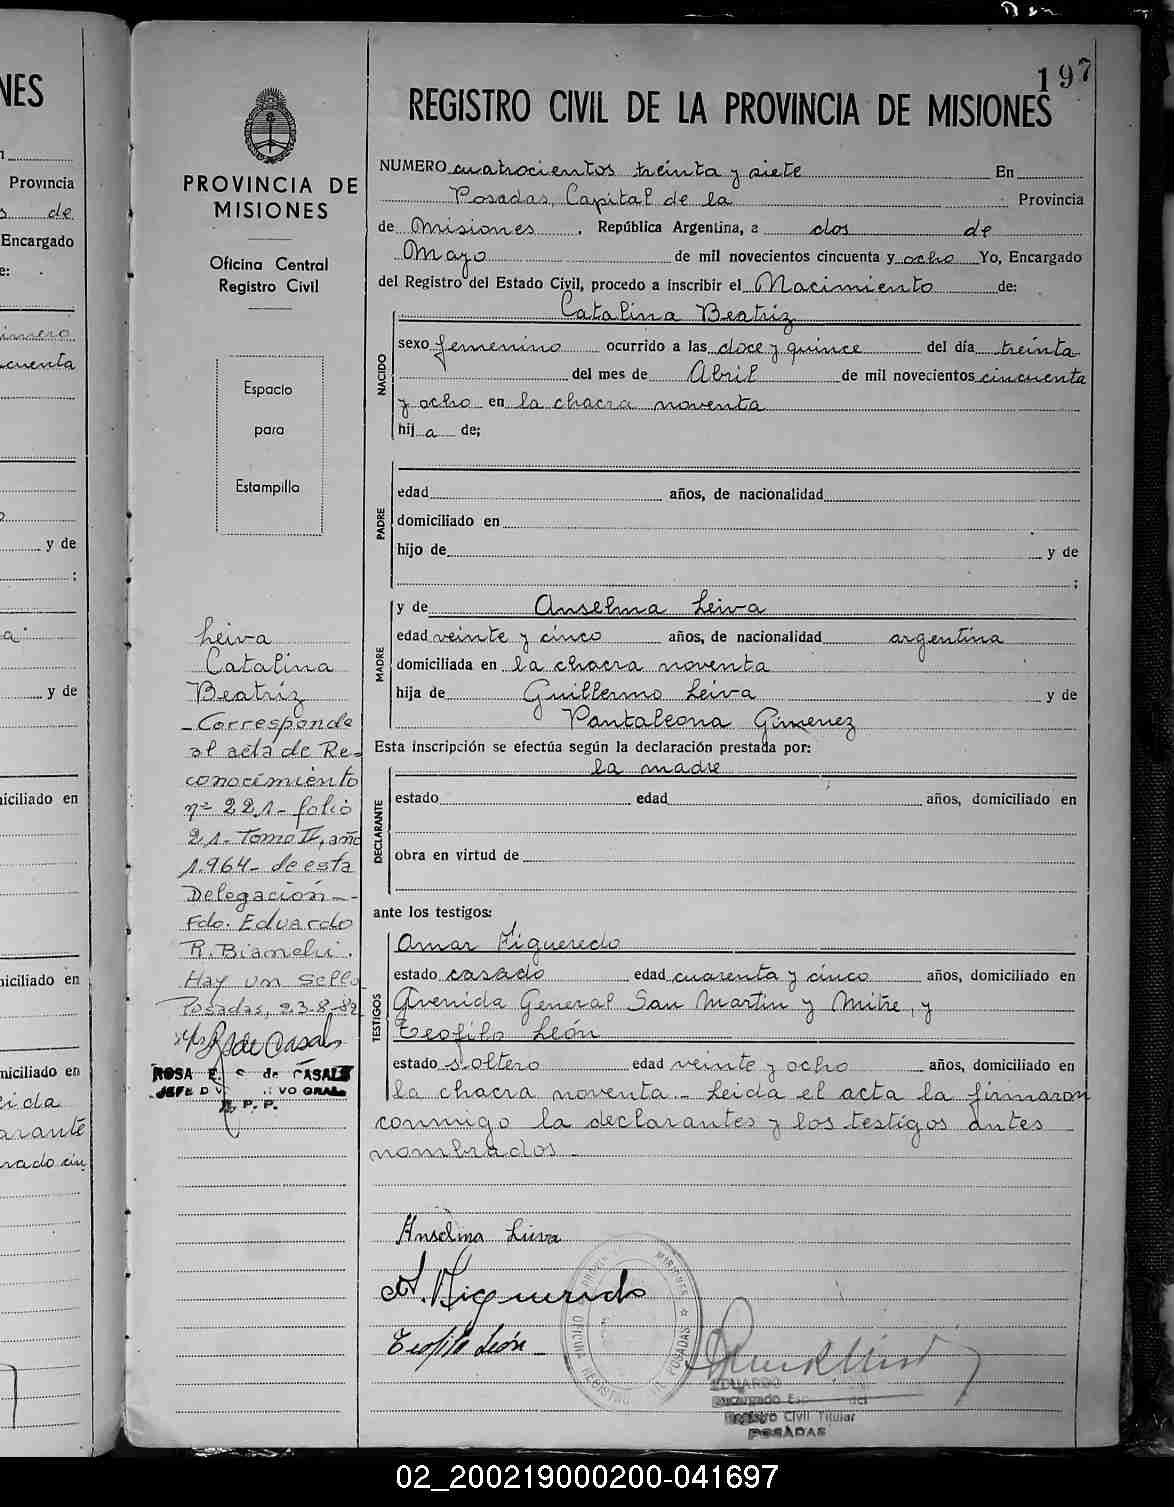 197
REGISTRO CIVIL DE LA PROVINCIA DE MISIONES
NUMERO cuatrocientos treinta y siete En
Posadas, Capital de la Provincia
de Misiones. República Argentina, a dos de
Mayo de mil novecientos cincuenta y ocho Yo, Encargado
del Registro del Estado Civil, procedo a inscribir el Nacimiento de:
Catalina Beatriz
NACIDO
sexo femenino ocurrido a las doce y quince del día treinta
del mes de Abril de mil novecientos cincuenta
y ocho en la chacra noventa
hij a de;
PADRE
edad años, de nacionalidad
domiciliado en
hijo de y de
;
MADRE
y de Anselma Leiva
edad veinte y cinco años, de nacionalidad argentina
domiciliada en la chacra noventa
hija de Guillermo Leiva y de
Pantaleona Gimenez
Esta inscripción se efectúa según la declaración prestada por:
la madre
DECLARANTE
estado edad años, domiciliado en
obra en virtud de
ante los testigos:
TESTIGOS
Omar Figueredo
estado casado edad cuarenta y cinco años, domiciliado en
Avenida General San Martin y Mitre, y
Teofilo León
estado soltero edad veinte y ocho años, domiciliado en
la chacra noventa.- Leida el acta la firmaron
conmigo la declarantes y los testigos antes
nombrados.-
Anselma Leiva
O. Figueredo
Teofilo León
EDUARDO
Encargado
del
Registro Civil Titular
POSADAS
PROVINCIA DE
MISIONES
Oficina Central
Registro Civil
Espacio
para
Estampilla
Leiva
Catalina
Beatriz
-Corresponde
al acta de Re-
conocimiento
nº 221- folio
21- Tomo II, año
1.964- de esta
Delegación.-
Fdo. Eduardo
R. Bianchi.
Hay un sello
Posadas, 23-8-82
R de Casals
ROSA E. S. de CASALS
NES
Provincia
de
Encargado
e:
cuenta
y de
;
y de
niciliado en
niciliado en
niciliado en
02_200219000200-041697